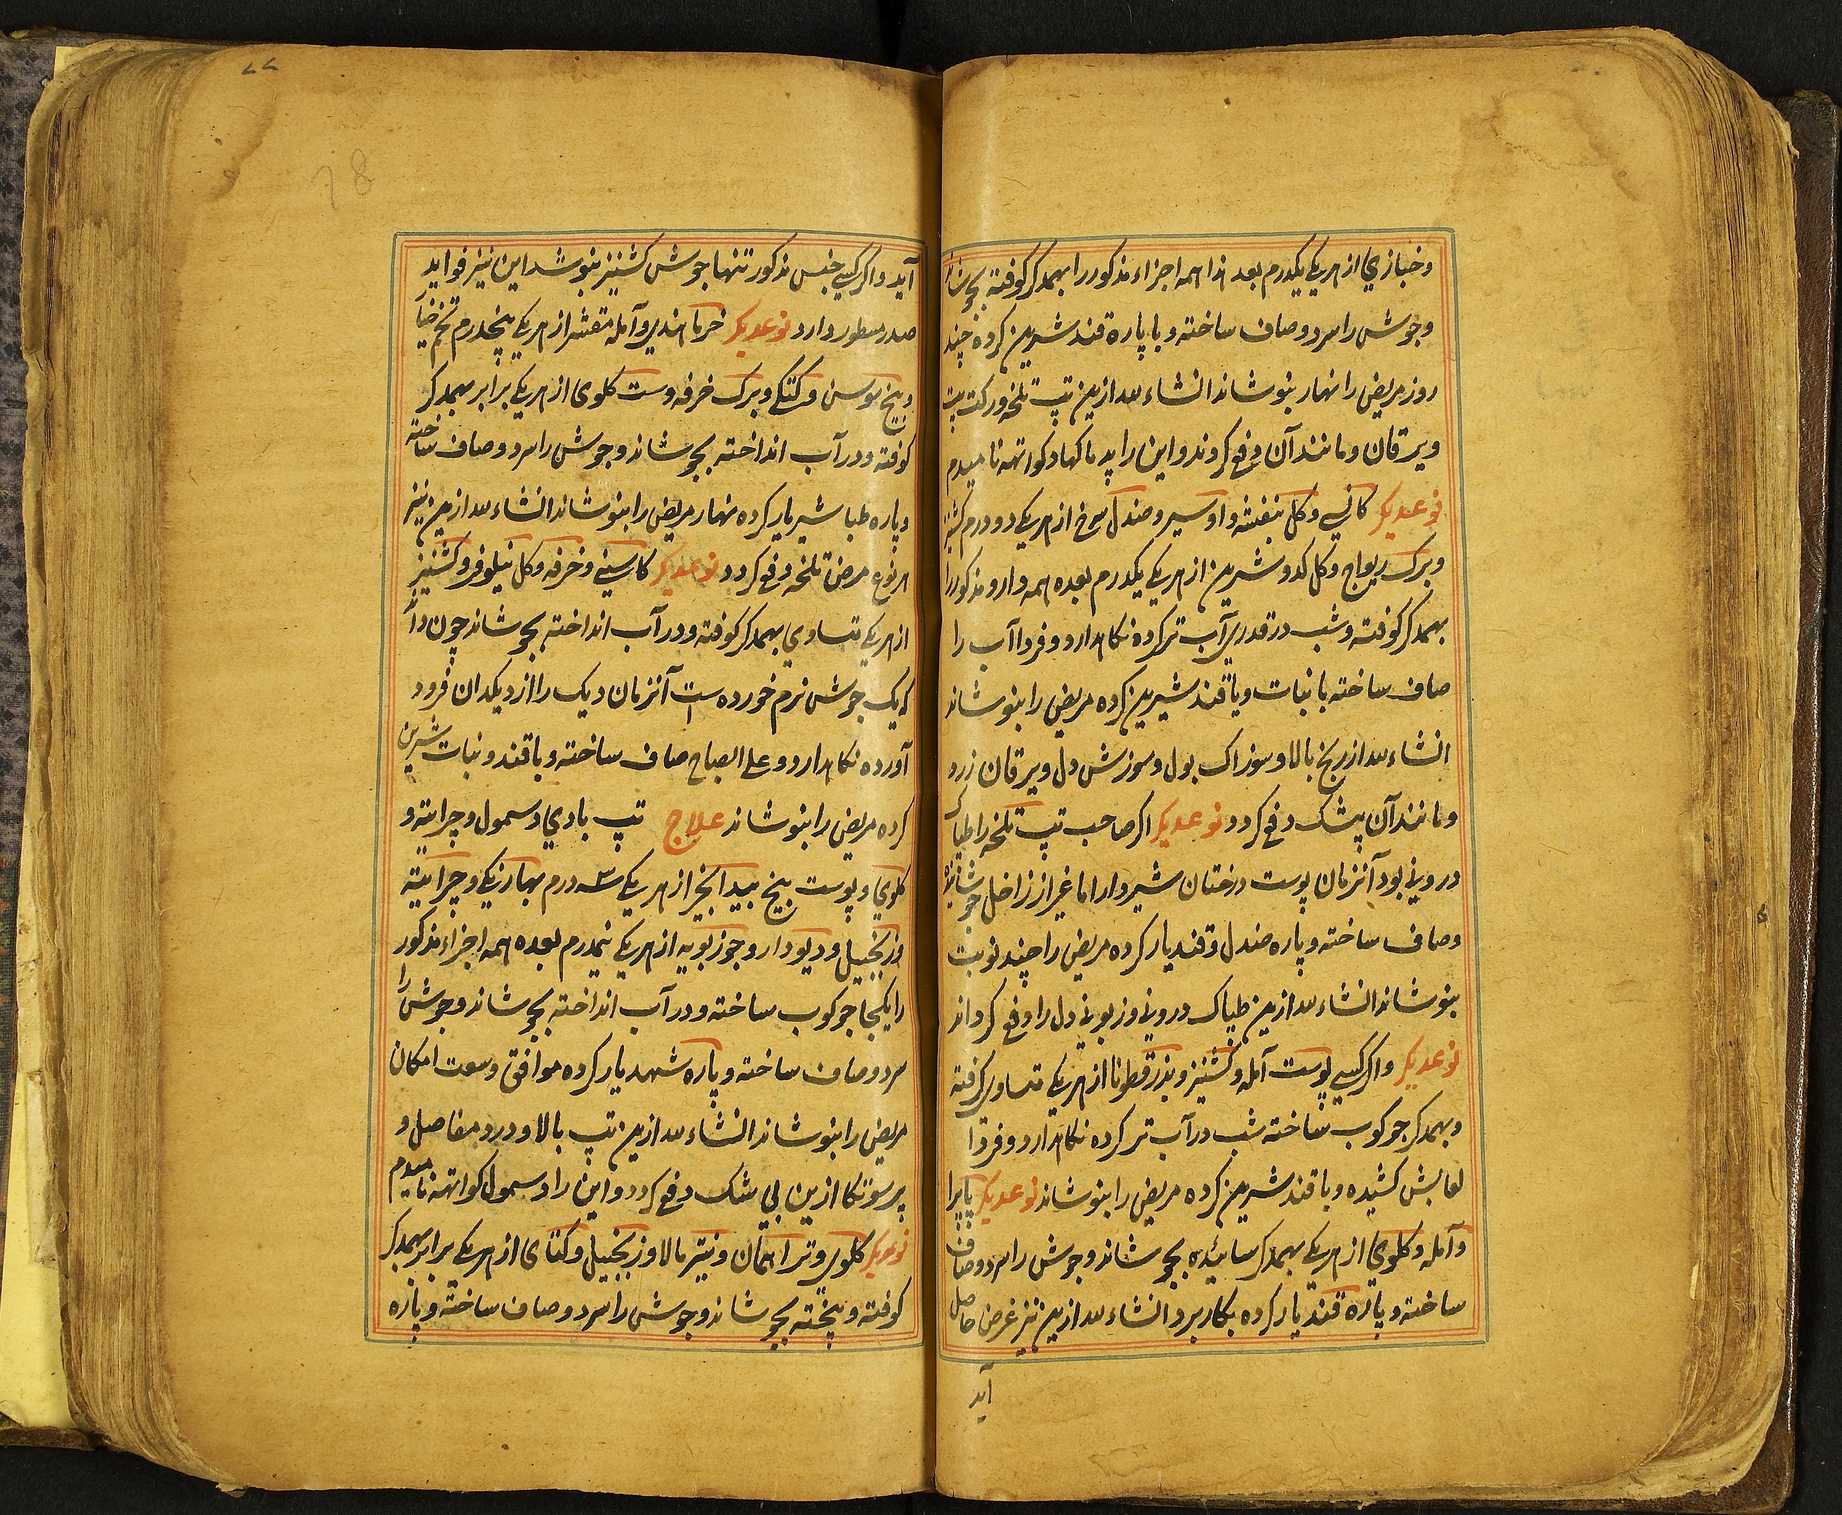 و خبازی از هر یکی یکدرم بعد ازا همه اجزاء مذکور را بهمدکر کوفته بجوشا
و جوش را سرد و صاف ساخته و با پارۀ قند شیرین کرده چند
روز مریض را نهار بنوشاند انشاء لله ازین تپ تلخه و رکت پت
و یرقان و مانند آن دفع کردند و این را پدماکهاد کواتهه نامیدم
نوعدیکر کل بنفشه و اوسیر و صندل سرخ از هر یکی دو درم
و برک ریواج و کل کدو شیرین از هر یکی یکدرم بعده همه دارو مذکور را
بهمدکر کوفته و شب در قدری آب تر کرده نکاهدارد و فردا آب را
صاف ساخته با نبات و یا قند شیرین کرده مریض را بنوشاند
انشاء لله از رنج بالا و سوزاک بول و سوزش دل و یرقان زرد
و مانند آن بیشک دفع کردد نوعدیکر اکر صاحب تپ تلخه را طپاک
درونی بود آنزمان پوست درختان شیردار اما غیر از زاخل جوشانیده
و صاف ساخته و پاره صندل و قند یار کرده مریض را چند نوبت
بنوشاند انشاء لله ازین طپاک درونی و زبونی دل را دفع کرداند
نوعدیکر و اکر کسی پوست آمله و کشنیز و بذرقطونا از هر یکی متساوی کرفته
و بهمدکر جوکوب ساخته شب در آب تر کرده نکاهدارد و فردا
لعابش کشیده و با قند شیرین کرده مریض را بنوشاند نوعدیکر پاپرا
و آمله و کلوی از هر یکی بهمدکر سائیده بجوشاند و جوش را سرد و صاف
ساخته و پاره قند یار کرده بکار برد انشاء لله ازین نیز غرض حاصل
آید
٧٧
78
آید و اکر کسی جنس مذکور تنها جوش کشنیز بنوشد این نیز فواید
صدر مسطور دارد نوعدیکر خرما هندی و آمله مقشر از هر یکی پنجدرم تخم خیار
و بیخ سوسن و کتکی و برک خرفه و ست کلوی از هر یکی برابر بهمدکر
کوفته و در آب انداخته بجوشاند و جوش را سرد و صاف ساخته
و پاره طباشیر یار کرده نهار مریض را بنوشاند انشاء لله ازین نیز
هر نوع مرض تلخه دفع کردد نوعدیکر کاسنی و خرفه و کل نیلوفر و کشنیز
از هر یکی متساوی بهمدکر کوفته و در آب انداخته بجوشاند چون داند
که یک جوش نرم خورده است آنزمان دیک را از دیکدان فرود
آورده نکاهدارد و علی الصباح صاف ساخته و با قند و نبات شیرین
کرده مریض را بنوشاند علاج تپ بادی دسمول و چرایته و
کلوی و پوست بیخ بیدانجیر از هر یکی ٣ درم بهارنکی و چرایته
و زنجبیل و دیودار و جوزبویه از هر یکی نیمدرم بعده همه اجزاء مذکور
را یکجا جوکوب ساخته و در آب انداخته بجوشاند و جوش را
سرد و صاف ساخته و پاره شهد یار کرده موافق وسعت امکان
مریض را بنوشاند انشاء لله ازین تپ بالا و درد مفاصل و
پرسوتکا ازین بی شک دفع کردد و این را دسمول کواتهه نامیدم
نوعدیکر کلوی و نیتر بالا و زنجبیل و کتای از هر یکی برابر بهمدکر
کوفته و پخته بجوشاند و جوش را سرد و صاف ساخته و پاره